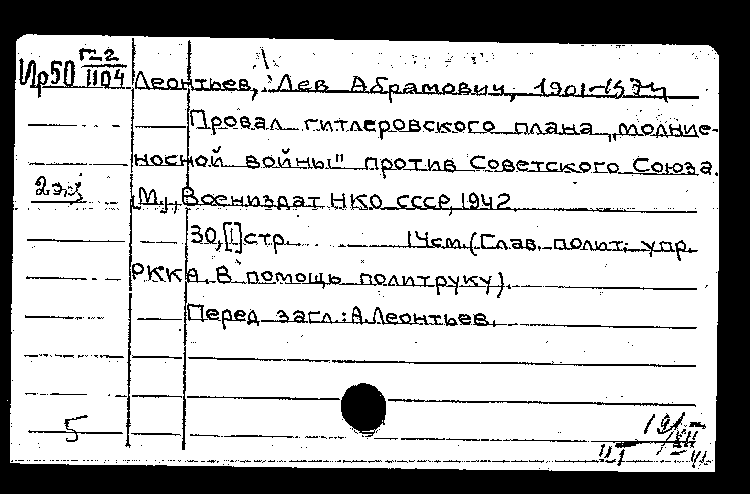 Ир50 Г-2
1104
Леонтьев, Лев Абрамович, 1901-1974
Провал гитлеровского плана „молние-
носной войны" против Советского Союза.
2 экз
[М.], Воениздат НКО СССР, 1942.
30,[1]стр. 14см.(Глав. полит. упр.
РККА. В помощь политруку).
Перед загл.: А.Леонтьев.
5
19/XII